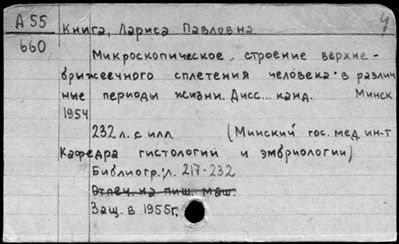 А 55
660
У
Книга, Лариса Павловна
Микроскопическое строение верхне-
брыжеечного сплетения человека в различ
ные периоды жизни. Дисс... канд. Минск
1954
232 л. с илл. (Минский гос. мед. ин-т
Кафедра гистологии и эмбриологии)
Библиогр: л. 217-232
Отпеч. на пиш. маш.
Защ. в 1955г.